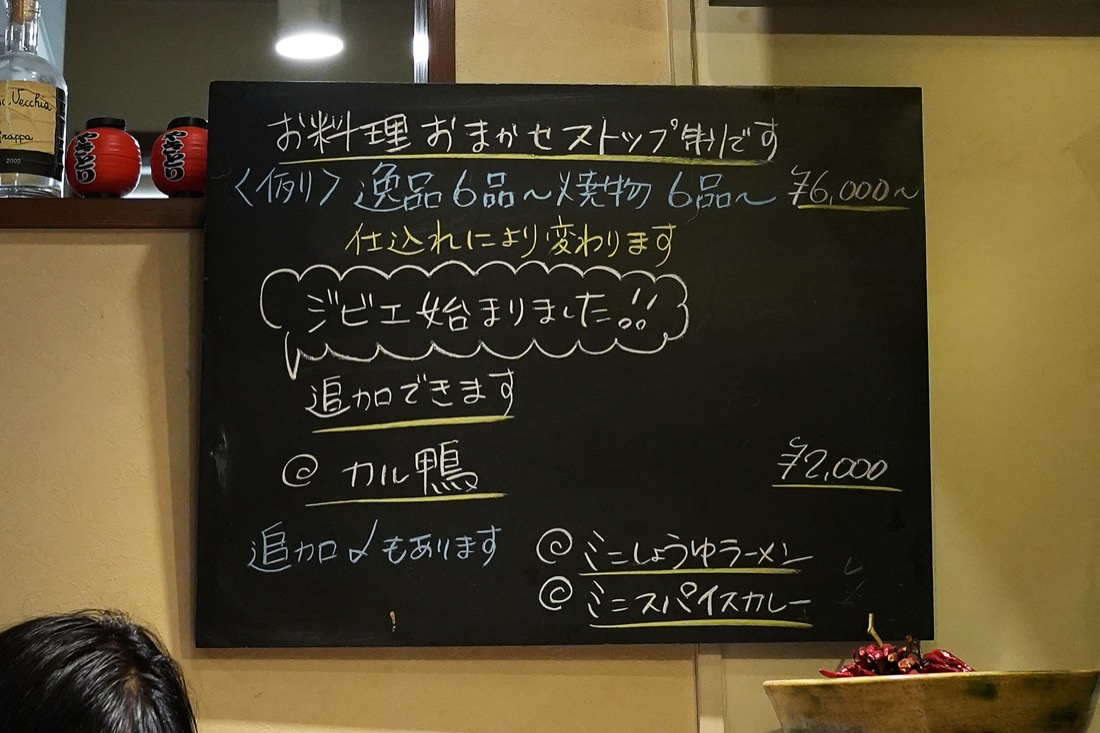 お料理 おまかせストップ制です
〈例〉 逸品6品〜焼物 6品〜 ¥6,000〜
仕込れにより変わります
ジビエ始まりました!!
追加できます
@ カル鴨 ¥2,000
追加〆もあります
@ ミニしょうゆラーメン
@ ミニスパイスカレー
Vecchia
Grappa
2005
やきとり
やきとり